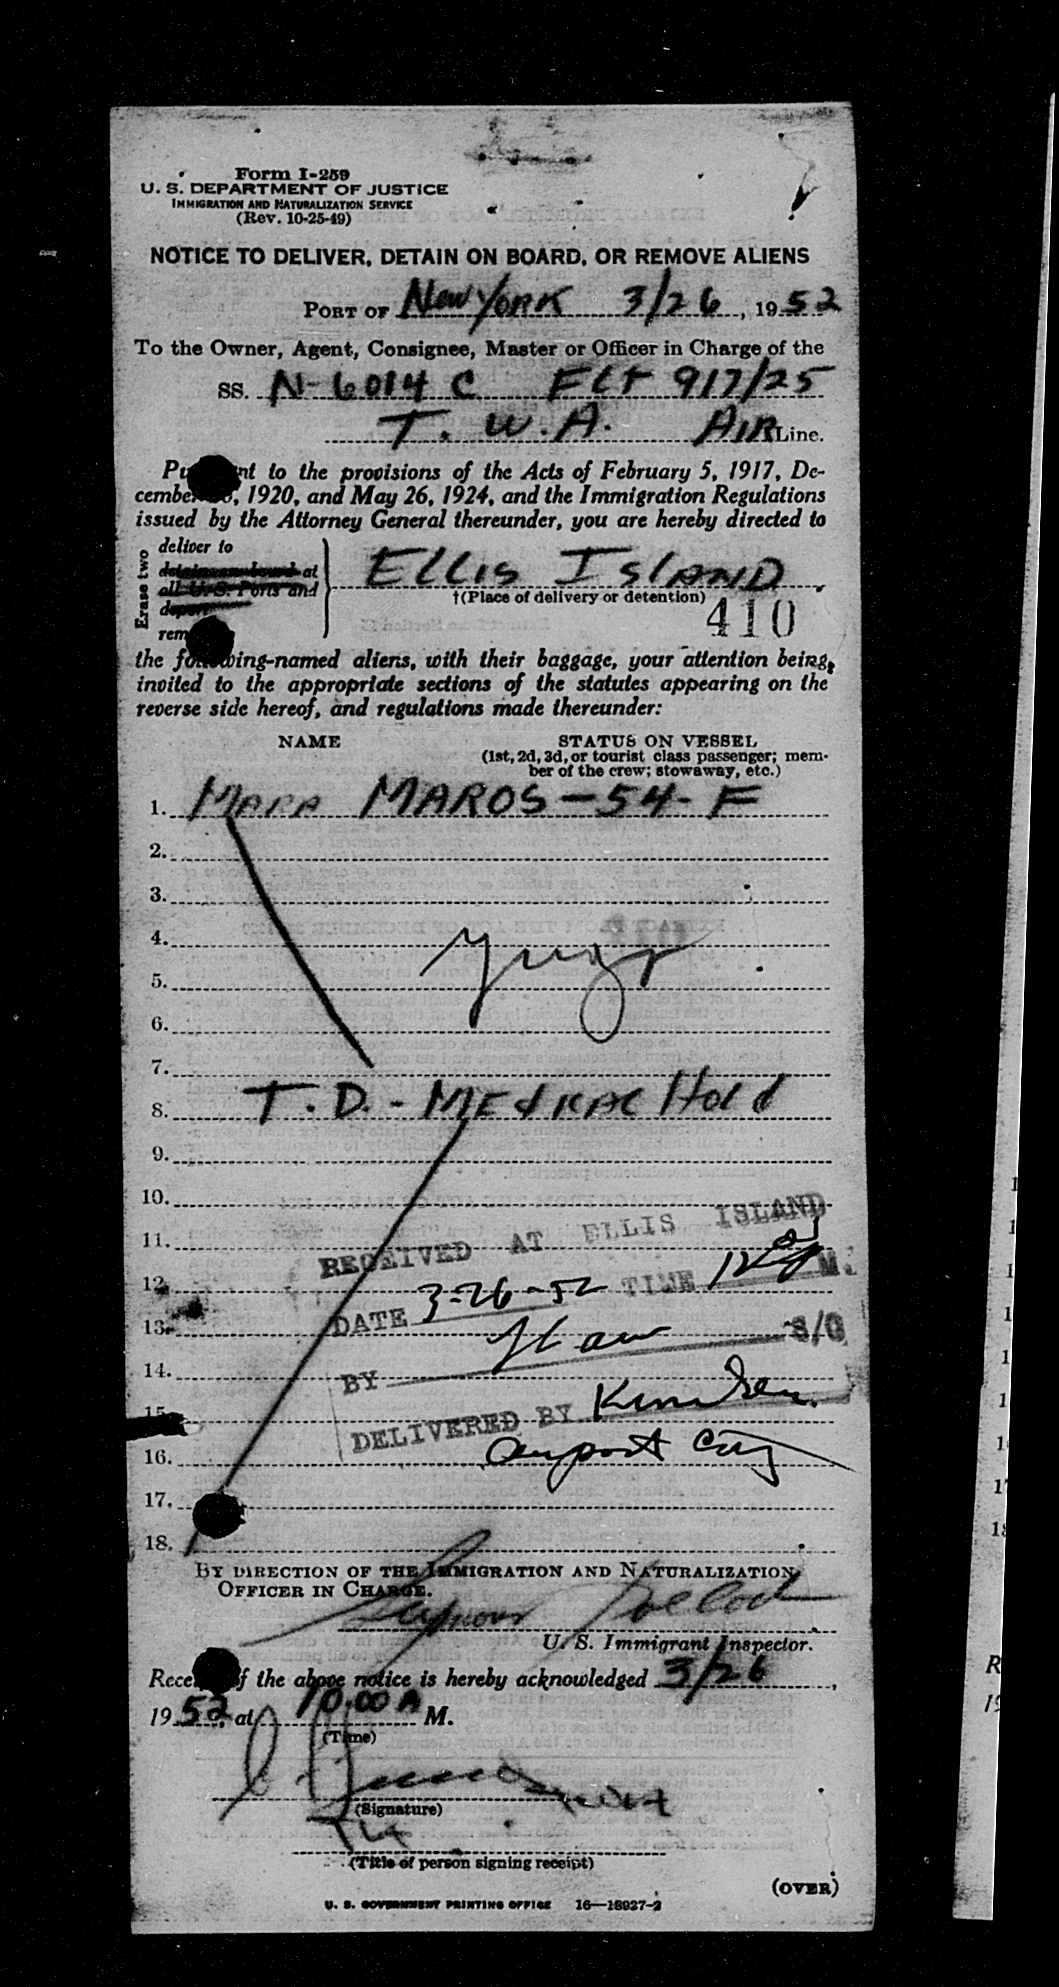 Form I-259
U. S. DEPARTMENT OF JUSTICE
IMMIGRATION AND NATURALIZATION SERVICE
(Rev. 10-25-49)
NOTICE TO DELIVER, DETAIN ON BOARD, OR REMOVE ALIENS
PORT OF New YORK 3/26, 1952
To the Owner, Agent, Consignee, Master or Officer in Charge of the
SS. N-6014 C FLT 917/25
T. W. A. AIR Line.
Pu nt to the provisions of the Acts of February 5, 1917, De-
cember , 1920, and May 26, 1924, and the Immigration Regulations
issued by the Attorney General thereunder, you are hereby directed to
Erase two
deliver to
detain on board at
all U. S. Ports and
deport
rem
ELLIS ISLAND
†(Place of delivery or detention)
410
the following-named aliens, with their baggage, your attention being
invited to the appropriate sections of the statutes appearing on the
reverse side hereof, and regulations made thereunder:
NAME STATUS ON VESSEL
(1st, 2d, 3d, or tourist class passenger; mem-
ber of the crew; stowaway, etc.)
1. MARA MAROS - 54 - F
2.
3.
4. Yugo
5.
6.
7.
8. T. D. - MEdICAL Hold
9.
10.
11. RECEIVED AT ELLIS ISLAND
12. DATE 3-26-52 TIME M.
13. S/G
14. BY
15. DELIVERED BY
16. Airport City
17.
18.
BY DIRECTION OF THE IMMIGRATION AND NATURALIZATION
OFFICER IN CHARGE.
Seymour Pollock
U. S. Immigrant Inspector.
Rece f the above notice is hereby acknowledged 3/26,
1952, at 10:00 A M.
(Time)
(Signature)
(Title of person signing receipt)
(OVER)
U. S. GOVERNMENT PRINTING OFFICE 16—18927-2